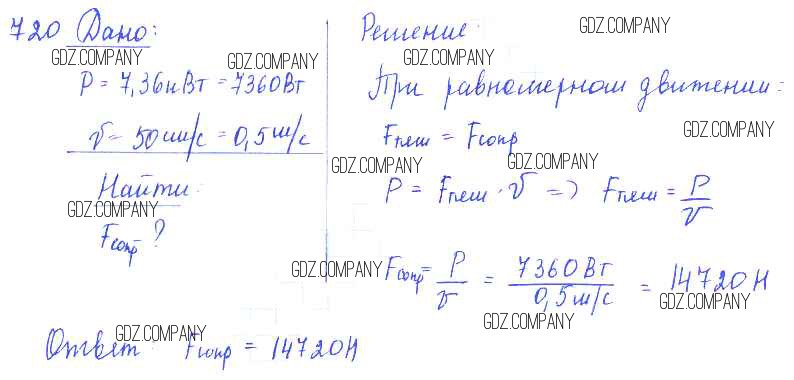 720 Дано:
GDZ.COMPANY
GDZ.COMPANY
P = 7,36кВт = 7360Вт
v = 50см/с = 0,5м/с
Найти:
GDZ.COMPANY
Fсопр ?
Решение:
GDZ.COMPANY
GDZ.COMPANY
При равномерном движении:
GDZ.COMPANY
Fтяги = Fсопр
GDZ.COMPANY
GDZ.COMPANY
P = Fтяги · v => Fтяги = P/v
GDZ.COMPANY
Fсопр = P/v = 7360Вт / 0,5м/с = 14720Н
GDZ.COMPANY
GDZ.COMPANY
GDZ.COMPANY
Ответ: Fсопр = 14720Н